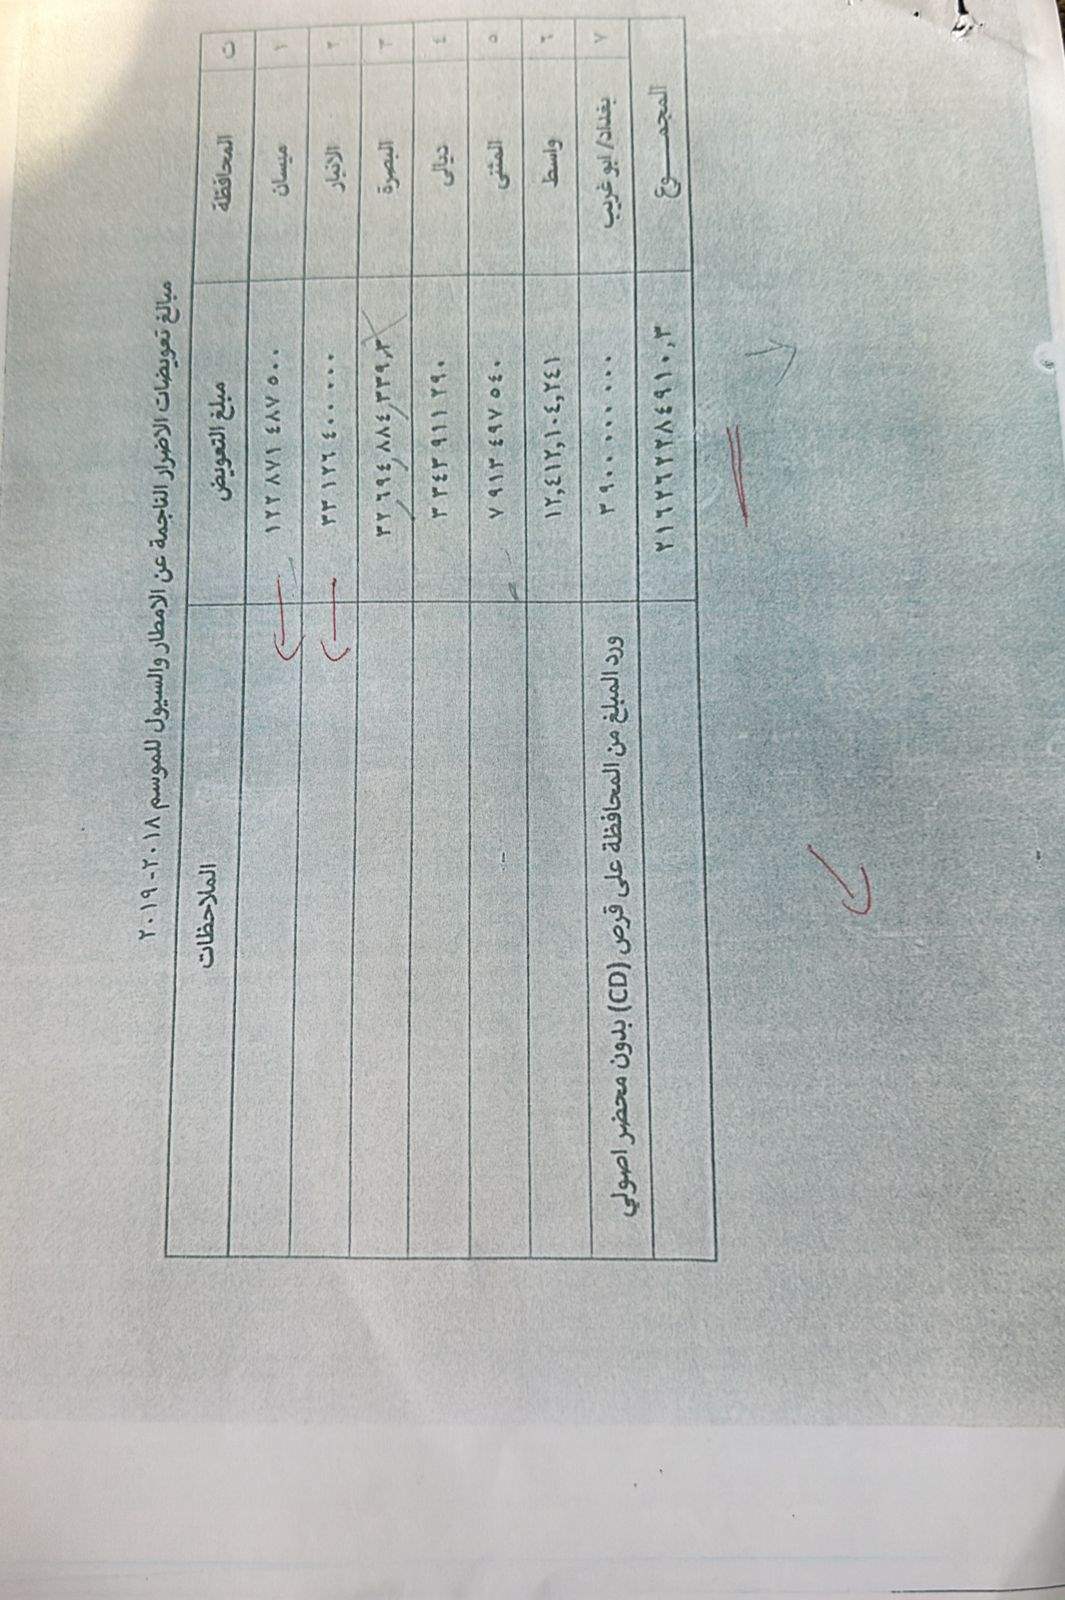 مبالغ تعويضات الاضرار الناجمة عن الامطار والسيول للموسم ٢٠١٨-٢٠١٩
ت المحافظة مبلغ التعويض الملاحظات
١ ميسان ١٢٢ ٨٧١ ٤٨٧ ٥٠٠
٢ الانبار ٣٣ ١٢٦ ٤٠٠ ٠٠٠
٣ البصرة ٣٢,٦٩٤,٨٨٤,٣٣٩,٣
٤ ديالى ٣ ٣٤٣ ٩١١ ٢٩٠
٥ المثنى ٧ ٩١٣ ٤٩٧ ٥٤٠
٦ واسط ١٢,٤١٢,١٠٤,٢٤١
٧ بغداد/ ابو غريب ٣ ٩٠٠ ٠٠٠ ٠٠٠ ورد المبلغ من المحافظة على قرص (CD) بدون محضر اصولي
المجمـــوع ٢١٦٢٦٢٢٨٤٩١٠,٣